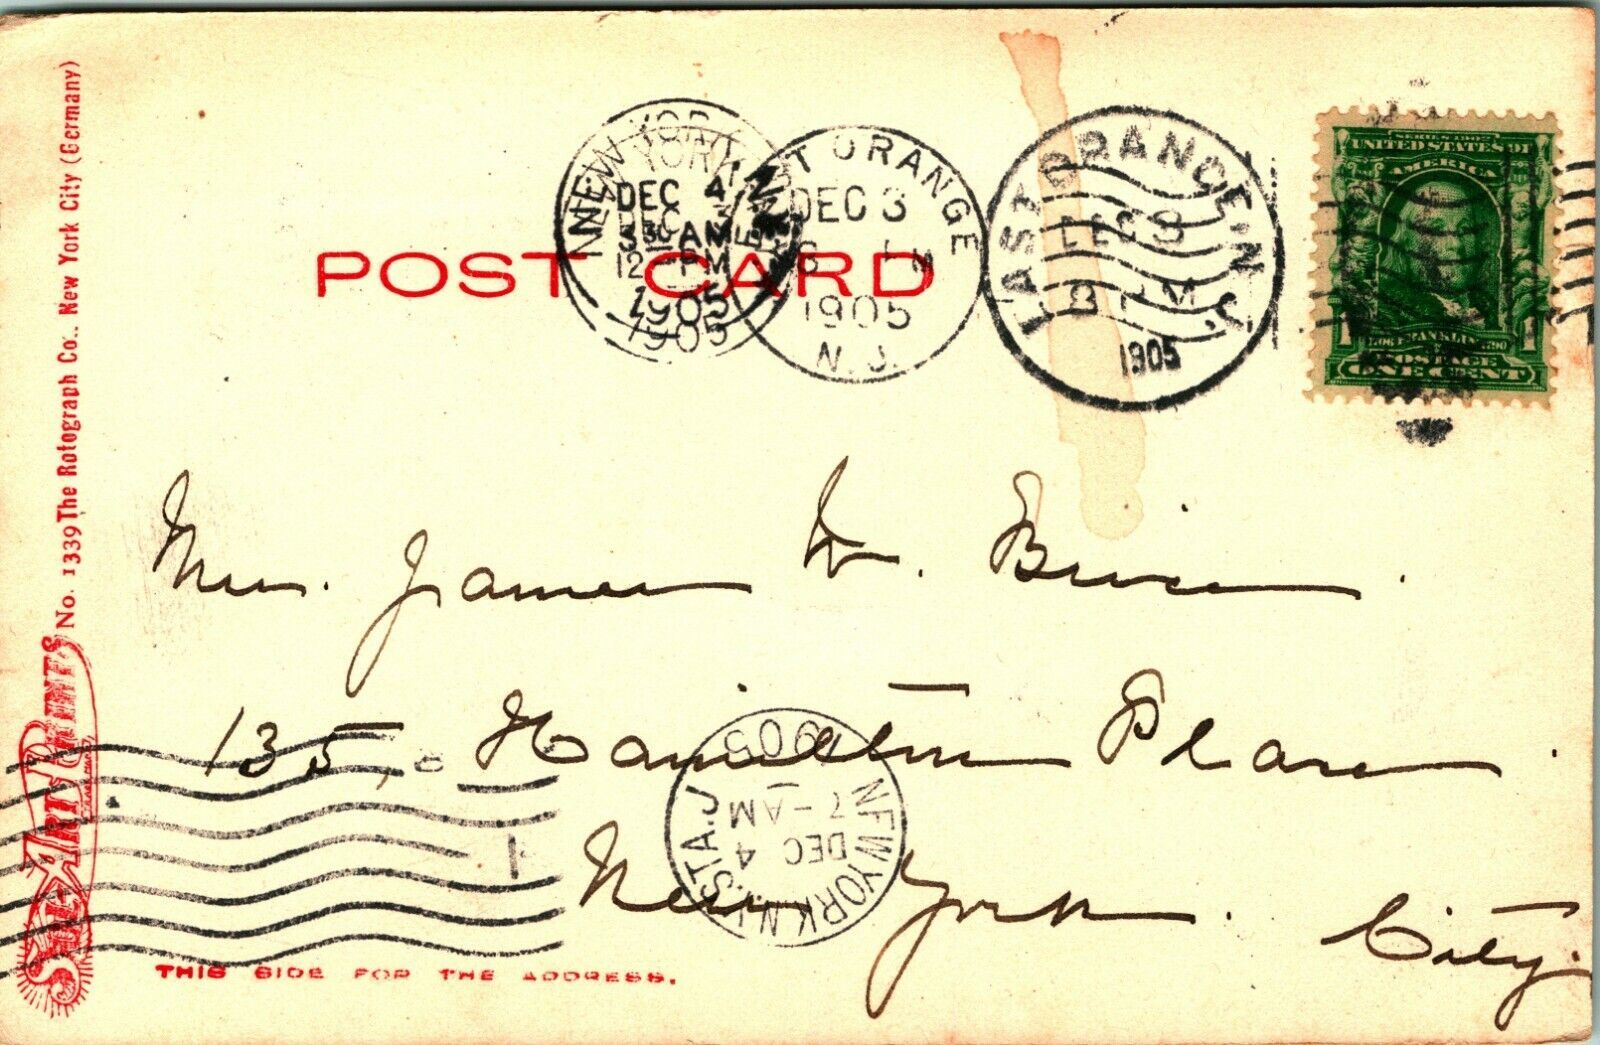 POST CARD
No. 1339 The Rotograph Co., New York City (Germany)
Sol-Art Prints
NEW YORK
DEC 4
AM
1905
12 PM
1905
T ORANGE
DEC 3
1905
N.J.
EAST ORANGE, N.J.
DEC 3
PM
1905
SERIES 1902
UNITED STATES OF
AMERICA
1706 FRANKLIN 1790
POSTAGE
1 ONE CENT 1
Mrs. James W. Brice.
135, Hamilton Place.
New York. City.
NEW YORK, N.Y. STA. J
DEC 4
7-AM
1905
THIS SIDE FOR THE ADDRESS.